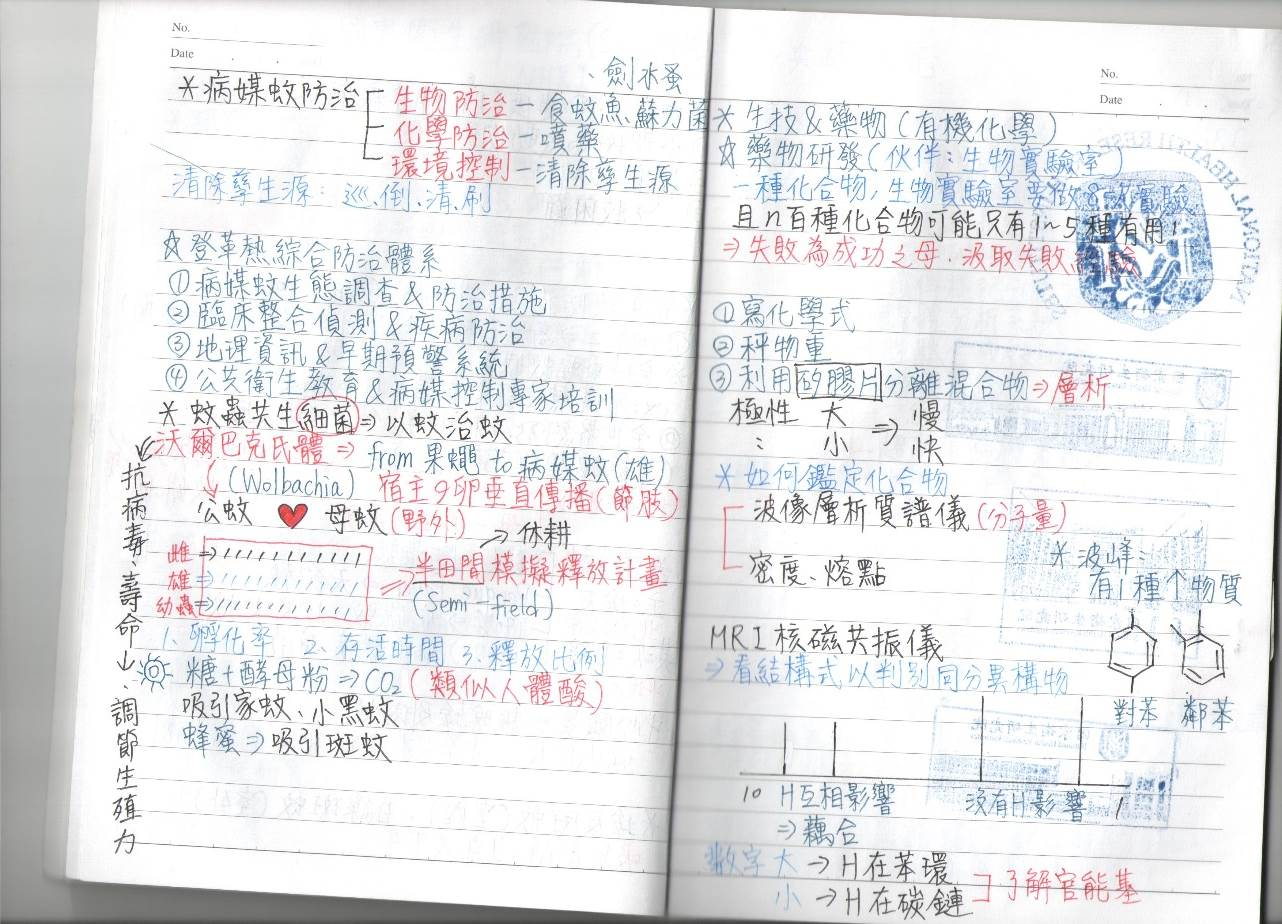 No.
Date
、劍水蚤
＊病媒蚊防治
生物防治－食蚊魚、蘇力菌
化學防治－噴藥
環境控制－清除孳生源
清除孳生源：巡、倒、清、刷
☆登革熱綜合防治體系
①病媒蚊生態調查&防治措施
②臨床整合偵測&疾病防治
③地理資訊&早期預警系統
④公共衛生教育&病媒控制專家培訓
＊蚊蟲共生細菌⇒以蚊治蚊
沃爾巴克氏體⇒from果蠅to病媒蚊(雄)
(Wolbachia) 宿主♀卵垂直傳播(節肢)
公蚊 ♥ 母蚊(野外) → 休耕
雌⇒
雄⇒
幼蟲⇒
⇒半田間模擬釋放計畫
(Semi-field)
1、孵化率 2、存活時間 3、釋放比例
糖+酵母粉⇒CO₂(類似人體酸)
吸引家蚊、小黑蚊
蜂蜜⇒吸引斑蚊
抗病毒、壽命山、調節生殖力
No.
Date
＊生技&藥物(有機化學)
☆藥物研發(伙伴：生物實驗室)
一種化合物，生物實驗室要做8次實驗
且n百種化合物可能只有1~5種有用！
⇒失敗為成功之母．汲取失敗經驗
NATIONAL HEALTH RESE
①寫化學式
②秤物重
③利用矽膠片分離混合物⇒層析
極性 大 ⇒ 慢
： 小 快
＊如何鑑定化合物
波像層析質譜儀(分子量)
密度、熔點
＊波峰：
有1種个物質
MRI核磁共振儀
⇒看結構式以判別同分異構物
對苯 鄰苯
10 H互相影響 沒有H影響 1
⇒藕合
數字大→H在苯環
小→H在碳鏈
了解官能基